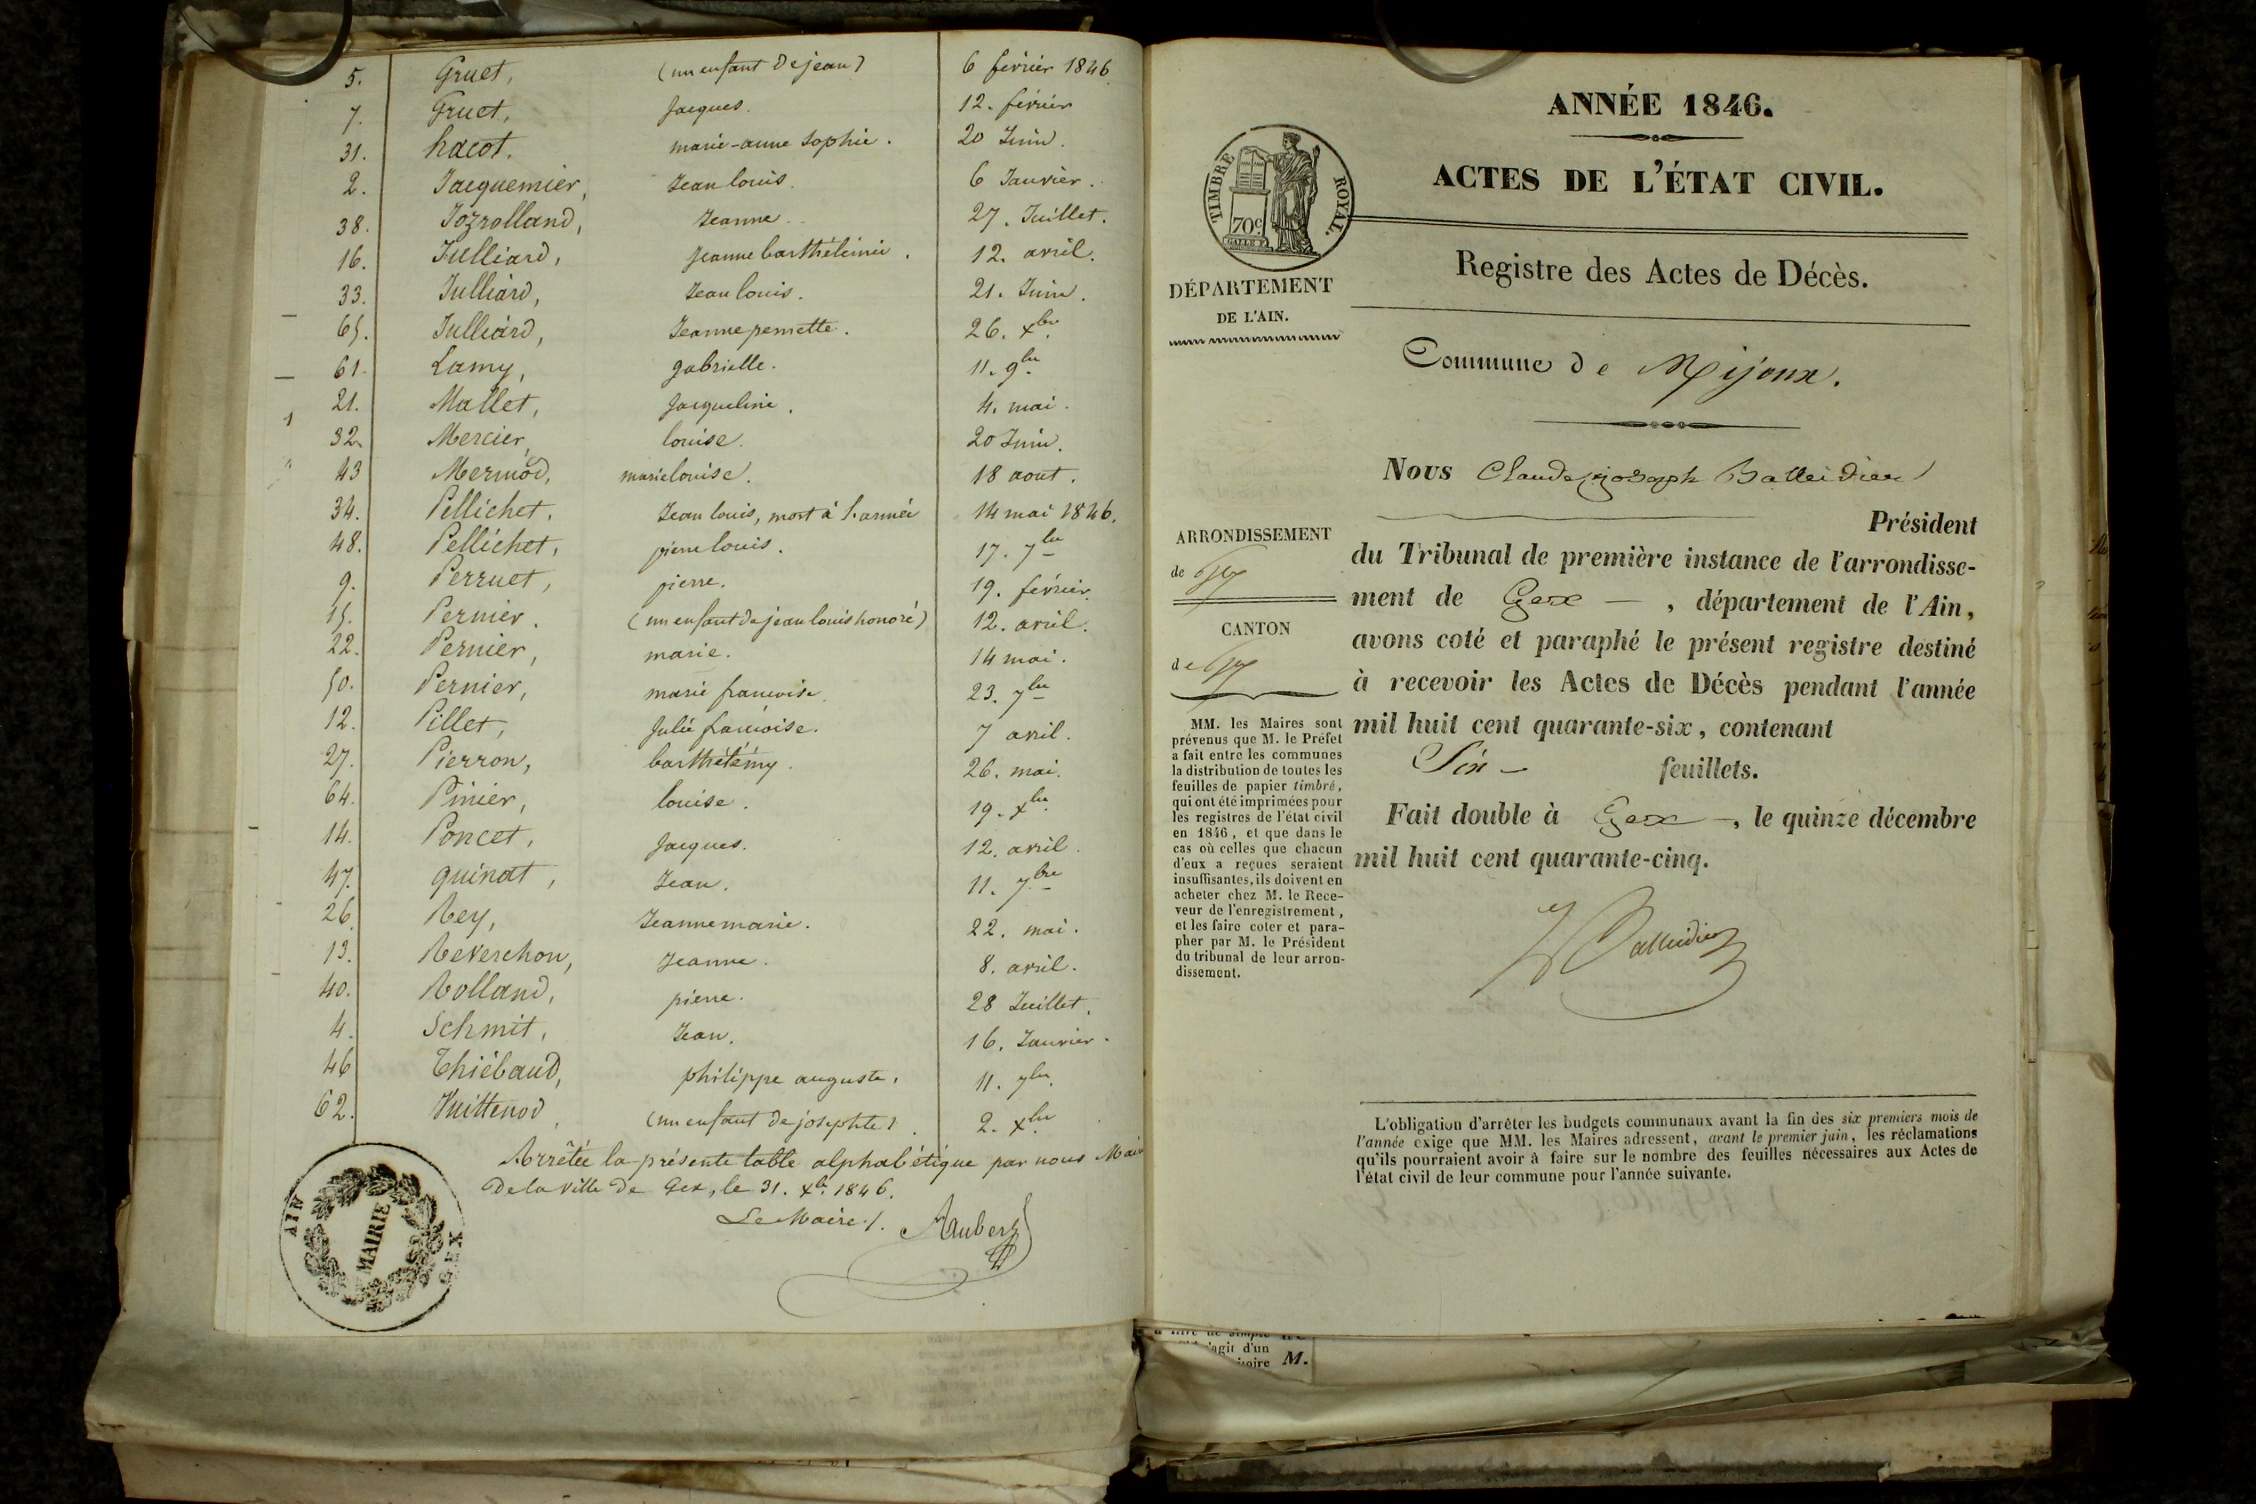 5. Gruet, (un enfant de jean) 6 février 1846
7. Gruet, Jacques. 12. février
31. hacot. marie-anne Sophie. 20 Juin.
2. Jacquemier, Jean louis. 6 Janvier.
38. Jozrolland, Jeanne. 27. Juillet.
16. Julliard, Jeanne barthélémie. 12. avril.
33. Julliard, Jean louis. 21. Juin.
65. Julliard, Jeanne pernette. 26. xbre
61. Lamy, gabrielle. 11. 9bre
21. Mallet, Jacqueline. 4. mai.
32. Mercier, louise. 20 Juin.
43 Mermod, marie louise. 18 aout.
34. Pellichet, Jean louis, mort à l'armée 14 mai 1846.
48. Pellichet, pierre louis. 17. 7bre
9. Perruet, pierre. 19. février.
15. Pernier. (un enfant de jean louis honoré) 12. avril.
22. Pernier, marie. 14 mai.
50. Pernier, marie francoise 23. 7bre
12. Pillet, Julie francoise. 7 avril.
27. Pierron, barthélémy. 26. mai.
64. Pinier, louise. 19. xbre
14. Poncet, Jacques. 12. avril.
47. quinat, Jean. 11. 7bre
26. Rey, Jeanne marie. 22. mai.
13. Reverchon, Jeanne. 8. avril.
40. Rolland, pierre. 28 Juillet.
4. Schmit, Jean. 16. Janvier.
46 Thiébaud, philippe auguste. 11. 7bre
62. Vuittenod, (un enfant de josephte) 2. xbre
Arrêtée la présente table alphabétique par nous Maire
De la ville de Gex, le 31. xbre 1846.
Le Maire /.
AIN MAIRIE GEX
ANNÉE 1846.
ACTES DE L'ÉTAT CIVIL.
TIMBRE ROYAL.
70c
GALLE F.
Registre des Actes de Décès.
DÉPARTEMENT
DE L'AIN.
Commune de Mijoux.
Nous Claude joseph Balleidier
Président
ARRONDISSEMENT
de Gex
CANTON
de Gex
du Tribunal de première instance de l'arrondisse-
ment de Gex — , département de l'Ain,
avons coté et paraphé le présent registre destiné
à recevoir les Actes de Décès pendant l'année
mil huit cent quarante-six, contenant
Six — feuillets.
Fait double à Gex —, le quinze décembre
mil huit cent quarante-cinq.
Balleidier
MM. les Maires sont
prévenus que M. le Préfet
a fait entre les communes
la distribution de toutes les
feuilles de papier timbré,
qui ont été imprimées pour
les registres de l'état civil
en 1846, et que dans le
cas où celles que chacun
d'eux a reçues seraient
insuffisantes, ils doivent en
acheter chez M. le Rece-
veur de l'enregistrement,
et les faire coter et para-
pher par M. le Président
du tribunal de leur arron-
dissement.
L'obligation d'arrêter les budgets communaux avant la fin des six premiers mois de
l'année exige que MM. les Maires adressent, avant le premier juin, les réclamations
qu'ils pourraient avoir à faire sur le nombre des feuilles nécessaires aux Actes de
l'état civil de leur commune pour l'année suivante.
'agit d'un
M.